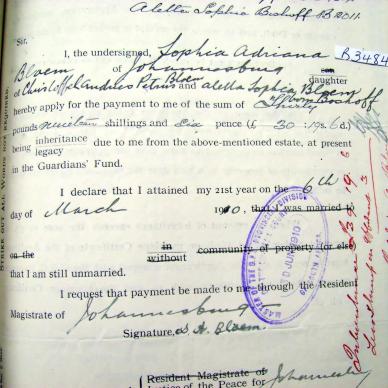 Aletta Sophia Bishoff B 2011.
Sir,
I, the undersigned, Sophia Adriana
B3484
Bloem of Johannesburg son
daughter
of Christoffel Andries Petrus Bloem and Aletta Sophia Bloem
born Bischoff
hereby apply for the payment to me of the sum of Thirty
pounds nineteen shillings and Six pence (£ 30 : 19s. 6d.)
being inheritance
legacy due to me from the above-mentioned estate, at present
in the Guardians' Fund.
I declare that I attained my 21st year on the 6th
day of March 1910, that I was married to
on the in
without community of property (or else)
that I am still unmarried.
I request that payment be made to me through the Resident
Magistrate of Johannesburg
Signature, S. A. Bloem.
Resident Magistrate of
Justice of the Peace for Johannesburg
STRIKE OUT ALL WORDS NOT REQUIRED.
MASTER OF THE
JUN 10
Inheritance £